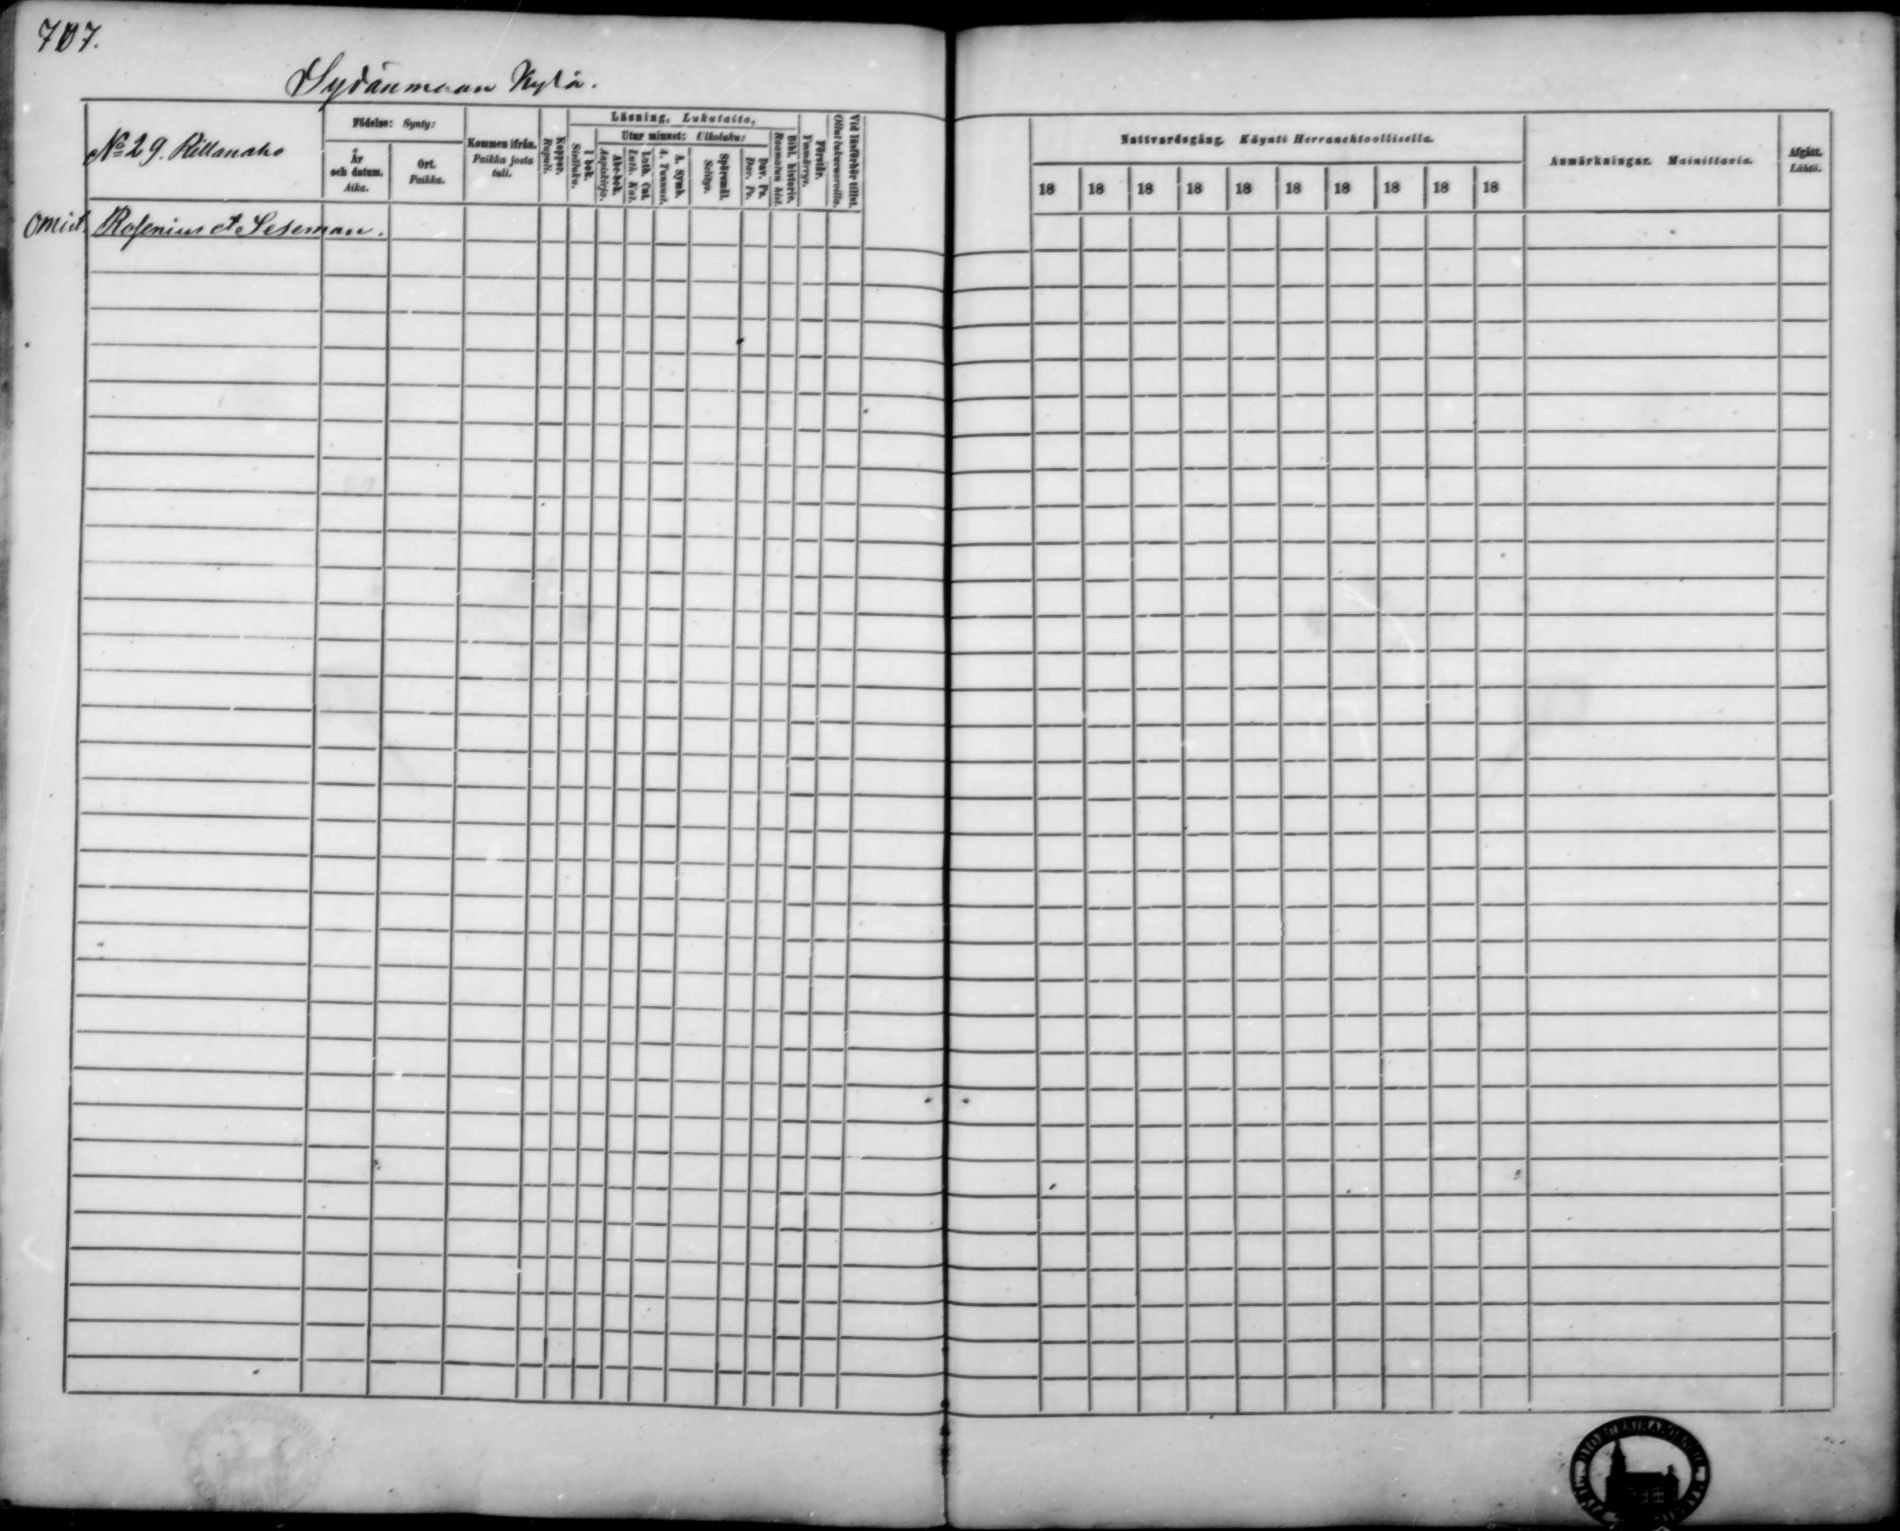 707.
Sydänmaan Kylä.
No 29. Rillanaho
Födelse: Synty:
År
och datum.
Aika.
Ort.
Paikka.
Kommen ifrån.
Paikka josta
tuli.
Koppor.
Rupuli.
Läsning. Lukutaito,
I bok.
Sisäluku.
Utur minnet: Ulkoluku:
Abc-bok.
Aapiskirja.
Luth. Cat.
Luth. Kat.
A. Symb.
A. Tunnust.
Spörsmål.
Selitys.
Dav. Ps.
Dav. Ps.
Bibl. historie.
Raamatun hist.
Förstår.
Ymmärrys.
Vid läsförhör tillst.
Ollut lukuvuoroilla.
Omist. Rosenius et Seseman.
Nattvardsgång. Käynti Herranehtoollisella.
18 18 18 18 18 18 18 18 18 18
Anmärkningar. Mainittavia.
Afgått.
Lähtö.